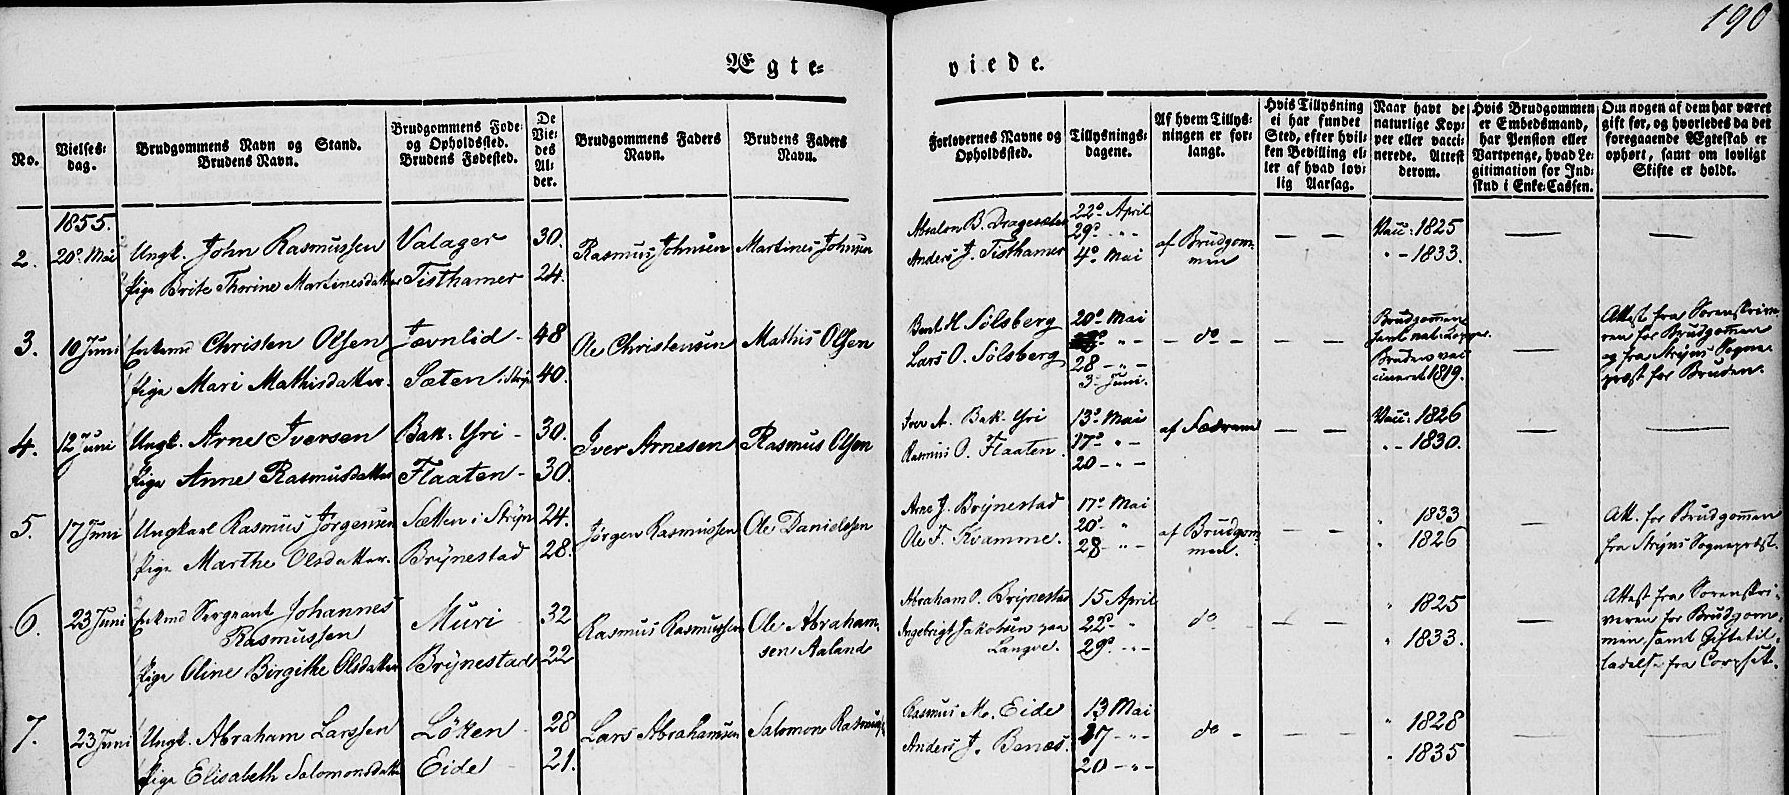 190
Ægte=
viede.
No.
Vielses=
dag.
Brudgommens Navn og Stand.
Brudens Navn.
Brudgommens Føde=
og Opholdssted.
Brudens Fødested.
De
Vie=
des
Al=
der.
Brudgommens Faders
Navn.
Brudens Faders
Navn.
Forlovernes Navne og
Opholdssted.
Tillysnings=
dagene.
Af hvem Tillys=
ningen er for=
langt.
Hvis Tillysning
ei har fundet
Sted, efter hvil=
ken Bevilling el=
ler af hvad lov=
lig Aarsag.
Naar havt de
naturlige Kop=
per eller vacci=
nerede. Attest
derom.
Hvis Brudgommen
er Embedsmand,
har Pension eller
Vartpenge, hvad Le=
gitimation for Ind=
skud i Enke=Cassen.
Om nogen af dem har været
gift før, og hvorledes da det
foregaaende Ægteskab er
ophørt, samt om lovligt
Skifte er holdt.
1855.
2.
20de Mai
Ungk. John Rasmussen
Pige Brite Thorine Martinesdatter
Valager
Tisthamer
30.
24.
Rasmus Johnsen
Martines Johnsen
Absalon B. Dragesæter
Anders J. Tisthamer
22de April
29de " "
4de Mai
af Brudgom=
men
— —
Vacc: 1825
" - 1833.
—
—
3.
10 Juni
Enkemd Christen Olsen
Pige Mari Mathisdatter
Jævnlid -
Sæten i Stryn
48
40.
Ole Christensen
Mathis Olsen
Bent H Sølsberg
Lars O. Sølsberg
20de Mai
" -
28 - " -
3 Juni.
- do -
— —
Brudgommen
Brudens vac
cineret 1819.
—
Attest fra Sorenskrive
ren for Brudgommen
og fra Stryns Sogne=
præst for Bruden.
4.
12 Juni
Ungk. Arne Iversen
Pige Anne Rasmusdatter
Bak-Yri -
Flaaten -
30.
30.
Iver Arnesen
Rasmus Olsen
Iver A. Bak-Yri
Rasmus O. Flaaten.
13de Mai
17de " -
20 - " -
af Fædrene
— —
Vacc: 1826
" - 1830.
—
—
5.
17 Juni
Ungkarl Rasmus Jørgensen
Pige Marthe Olsdatter.
Sætten i Stryn
Brÿnestad
24.
28.
Jørgen Rasmussen
Ole Danielsen
Arne J. Brÿnestad
Ole T. Kvamme.
17de Mai
20de "
28 - " -
af Brudgom
men.
— —
" 1833
" 1826
—
Att. for Brudgommen
fra Stryns Sognepræst.
6.
23 Juni
Enkemd Sergeant Johannes
Rasmussen
Pige Oline Birgithe Olsdatter
Muri
Brÿnestad
32
22
Rasmus Rasmussen
Ole Abraham=
sen Aaland
Abraham O. Brÿnestad
Ingebrigt Jakobsen paa
Langve.
15 April
22de "
29de " -
do
— —
" 1825
" 1833.
—
Attest fra Sorenskri=
veren for Brudgom=
men, samt Giftetil=
ladelse fra Corpset.
7.
23 Juni
Ungk. Abraham Larssen
Pige Elisabeth Salomonsdatter
Löken -
Eide -
28
21.
Lars Abrahamsen
Salomon Rasmuss
Rasmus M. Eide
Anders J. Benæs.
13 Mai
17 - " -
20 - " -
do -
— —
" 1828
" 1835
—
—